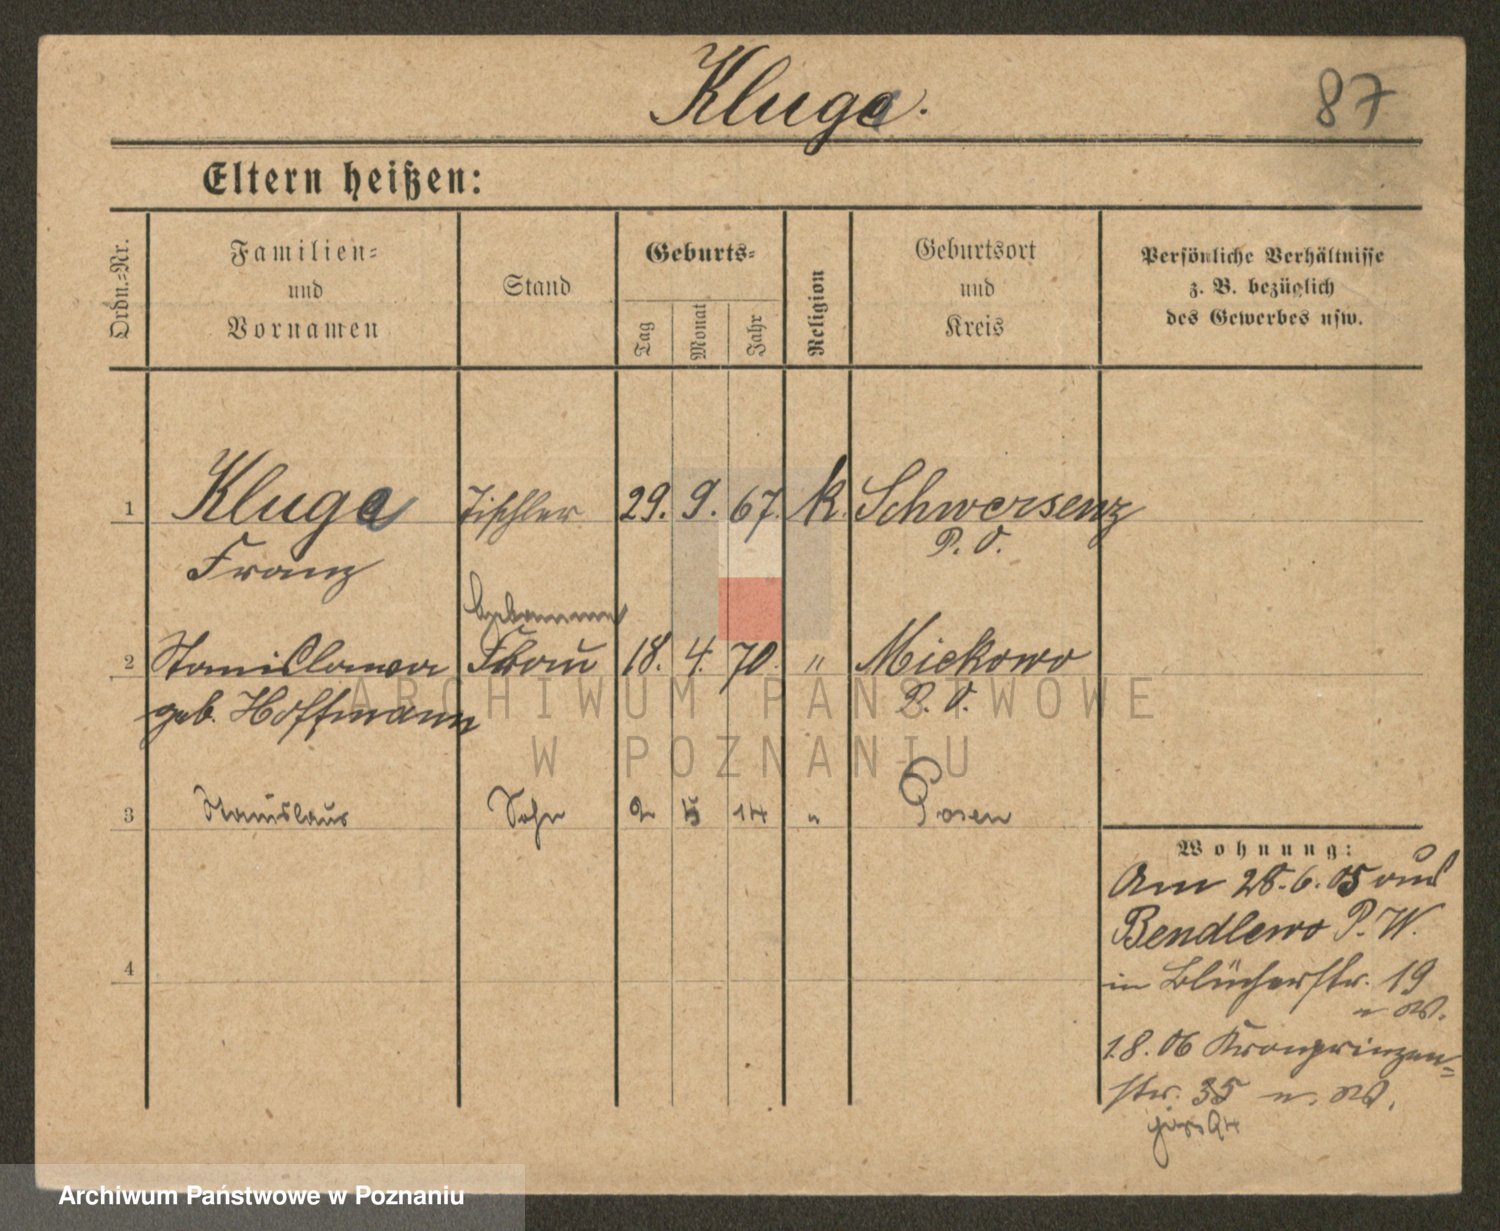 Kluge.
87
Eltern heißen:
Ordn.=Nr.
Familien=
und
Vornamen
Stand
Geburts=
Tag
Monat
Jahr
Religion
Geburtsort
und
Kreis
Persönliche Verhältnisse
z. B. bezüglich
des Gewerbes usw.
1 Kluge Tischler 29. 9. 67. k. Schwersenz
P. O.
Franz
2 Stanislawa Frau 18. 4. 70. " Mickowo
geb. Hoffmann P. O.
3 Stanislaus Sohn 2 5 14 " Posen
4
Wohnung:
Am 28.6.05 aus
Bendlewo P. W.
in Blücherstr. 19
n. W.
1.8.06 Kronprinzen=
str. 35 n. W.
ARCHIWUM PAŃSTWOWE
W POZNANIU
Archiwum Państwowe w Poznaniu